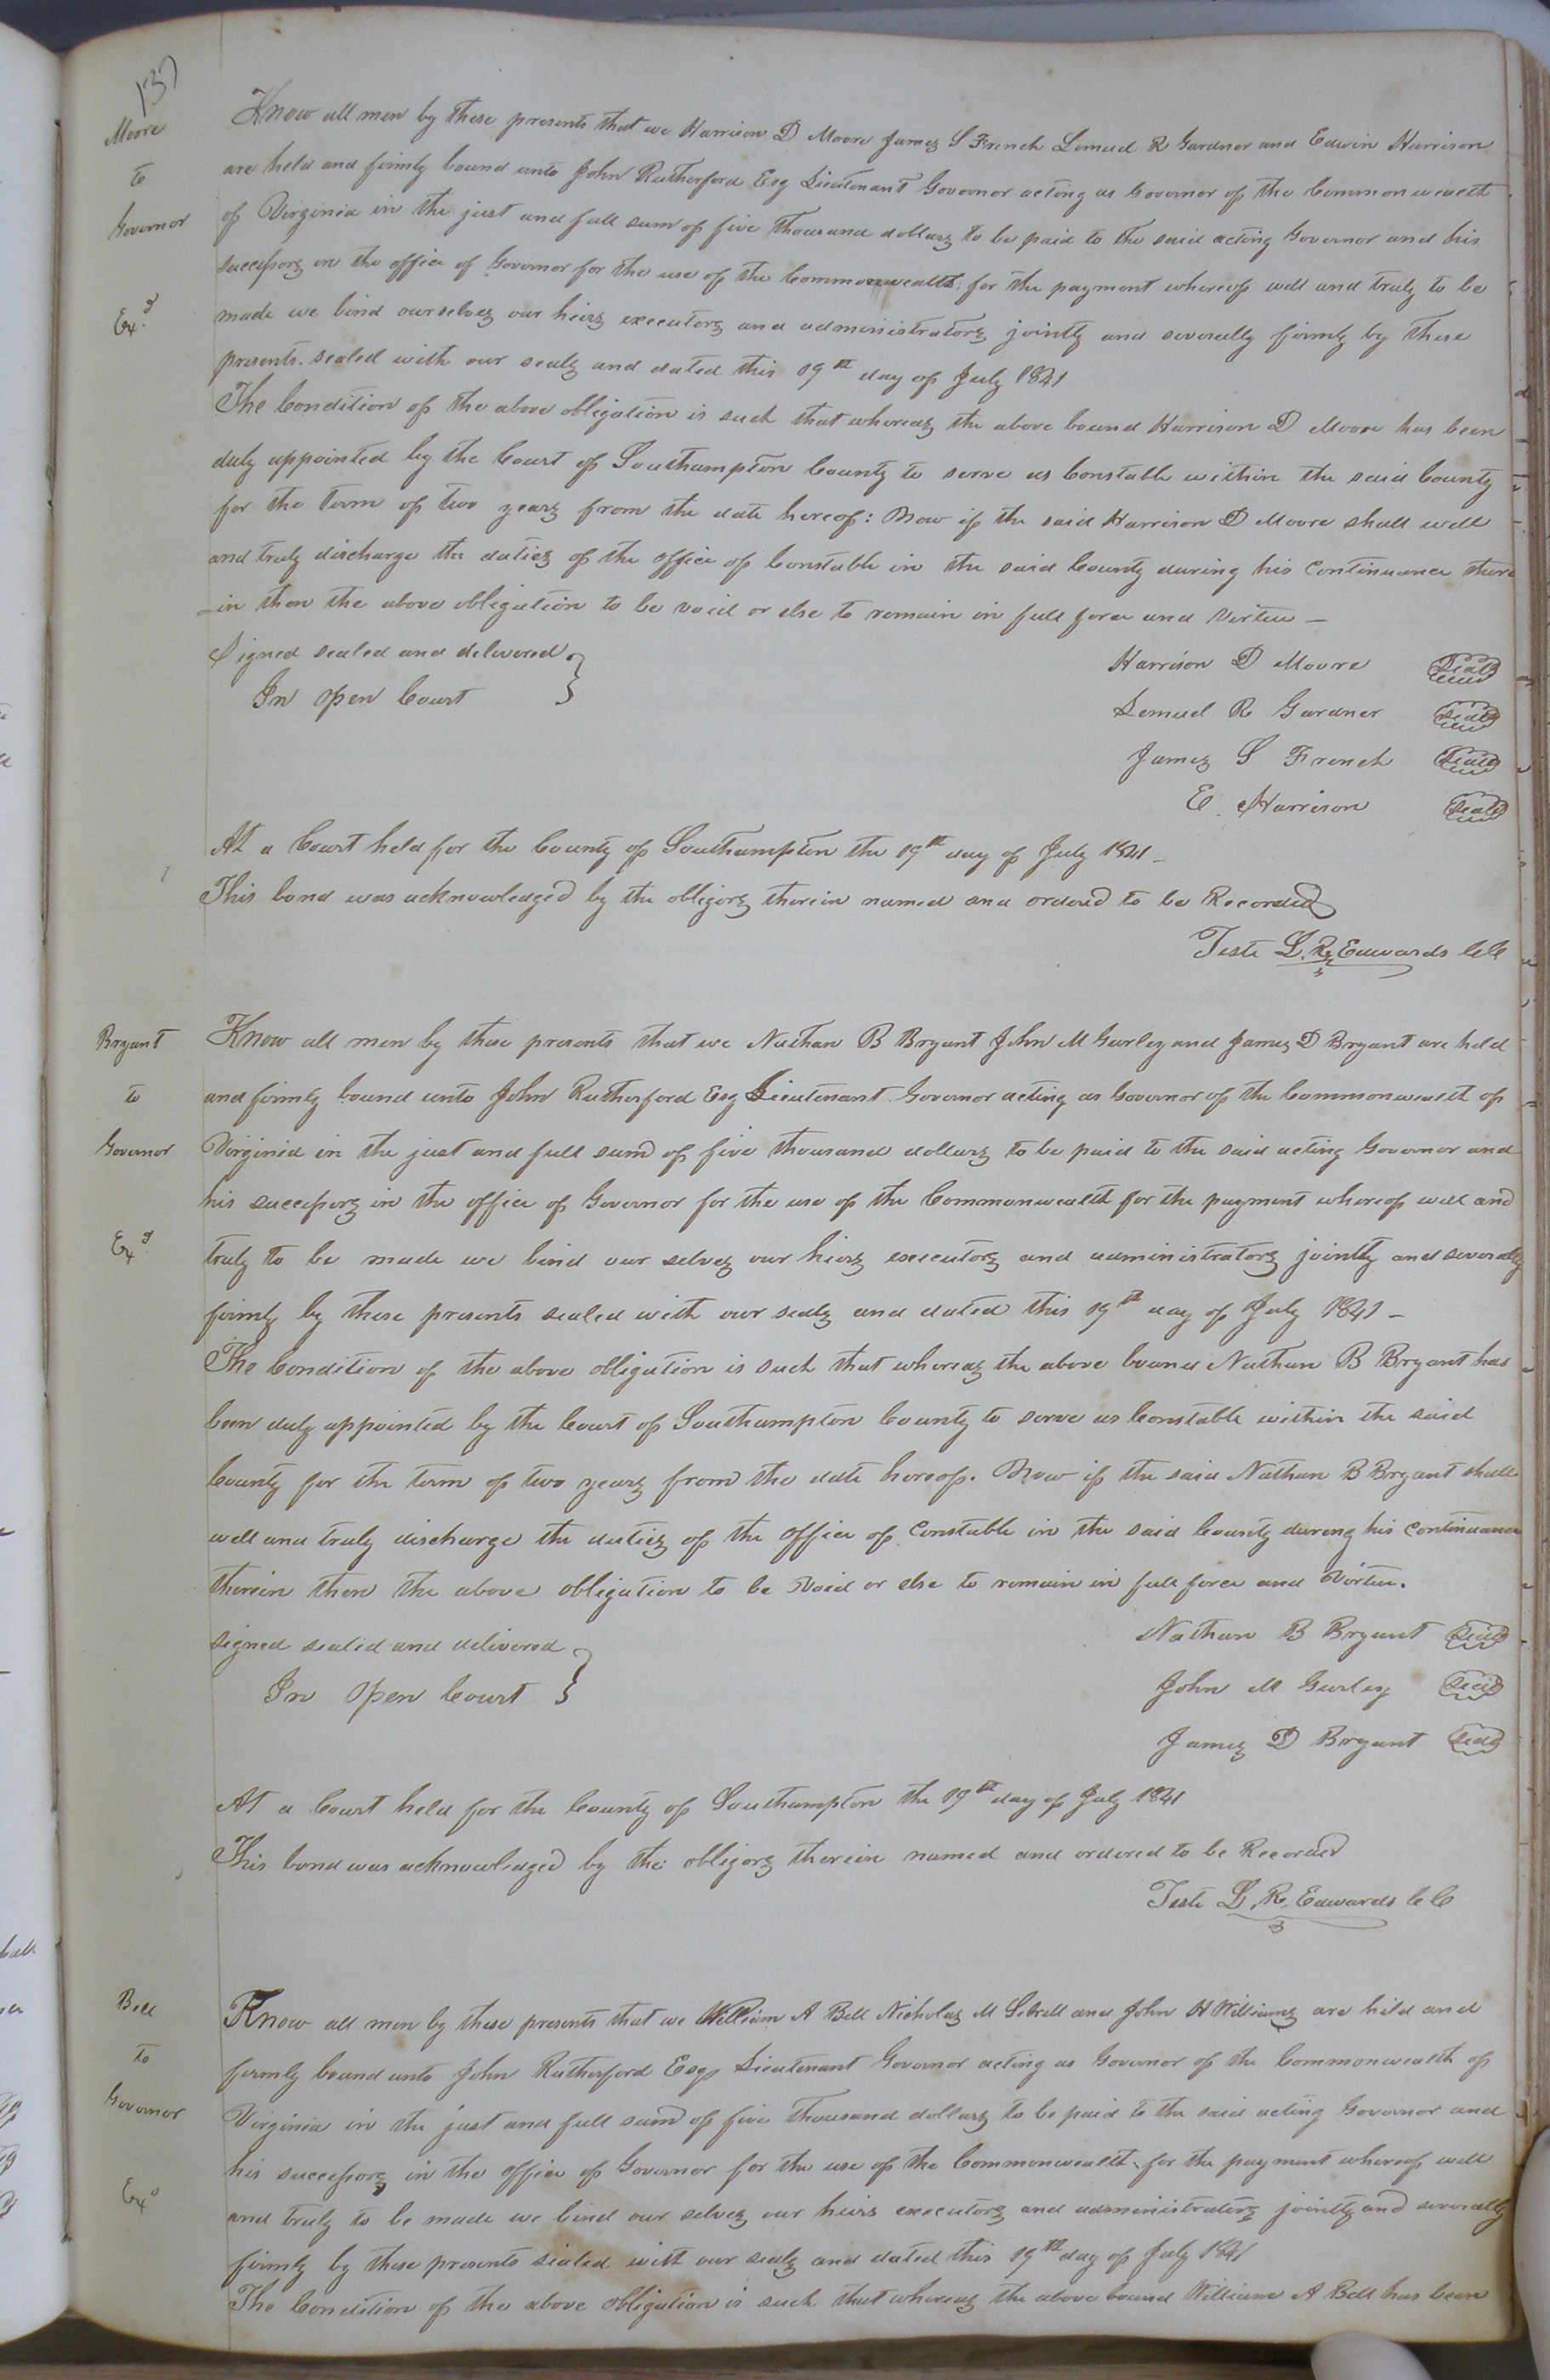 137
Moore
to
Governor
Exd
Know all men by these presents that we Harrison D Moore James S French Lemuel R Gardner and Edwin Harrison
are held and firmly bound unto John Rutherford Esq Lieutenant Governor acting as Governor of the Commonwealth
of Virginia in the just and full sum of five thousand dollars to be paid to the said acting Governor and his
successors in the office of Governor for the use of the Commonwealth; for the payment whereof well and truly to be
made we bind ourselves our heirs executors and administrators jointly and severally firmly by these
presents. sealed with our seals and dated this 19th day of July 1841
The Condition of the above obligation is such that whereas the above bound Harrison D Moore has been
duly appointed by the Court of Southampton County to serve as Constable within the said County
for the term of two years from the date hereof: Now if the said Harrison D Moore shall well
and truly discharge the duties of the office of Constable in the said County during his Continuance there
-in then the above obligation to be void or else to remain in full force and Virtue —
Signed sealed and delivered }
In open Court }
Harrison D Moore Seal
Lemuel R Gardner Seal
James S French Seal
E. Harrison Seal
At a Court held for the County of Southampton the 19th day of July 1841 _
This bond was acknowledged by the obligors therein named and ordered to be Recorded
Teste L. R. Edwards CC
Bryant
to
Governor
Exd
Know all men by these presents that we Nathan B Bryant John M Gurley and James D Bryant are held
and firmly bound unto John Rutherford Esq Lieutenant Governor acting as Governor of the Commonwealth of
Virginia in the just and full sum of five thousand dollars to be paid to the said acting Governor and
his successors in the office of Governor for the use of the Commonwealth for the payment whereof well and
truly to be made we bind our selves our hiers executors and administrators jointly and severally
firmly by these presents sealed with our seals and dated this 19th day of July 1841 —
The Condition of the above obligation is such that whereas the above bound Nathan B Bryant has
been duly appointed by the Court of Southampton County to serve as Constable within the said
County for the term of two years from the date hereof. Now if the said Nathan B Bryant shall
well and truly discharge the duties of the office of Constable in the said County during his Continuance
therein then the above obligation to be Void or else to remain in full force and Virtue.
signed sealed and delivered }
In open Court }
Nathan B Bryant Seal
John M Gurley Seal
James D Bryant Seal
At a Court held for the County of Southampton the 19th day of July 1841
This bond was acknowledged by the obligors therein named and ordered to be Recorded
Teste L. R. Edwards CC
Bell
to
Governor
Exd
Know all men by these presents that we William A Bell Nicholas M Sebrell and John H Williams are held and
firmly bound unto John Rutherford Esqr Lieutenant Governor acting as Governor of the Commonwealth of
Virginia in the just and full sum of five thousand dollars to be paid to the said acting Governor and
his successors in the office of Governor for the use of the Commonwealth, for the payment whereof well
and truly to be made we bind our selves our heirs executors and administrators jointly and severally
firmly by these presents sealed with our seals and dated this 19th day of July 1841
The Condition of the above obligation is such that whereas the above bound William A Bell has been